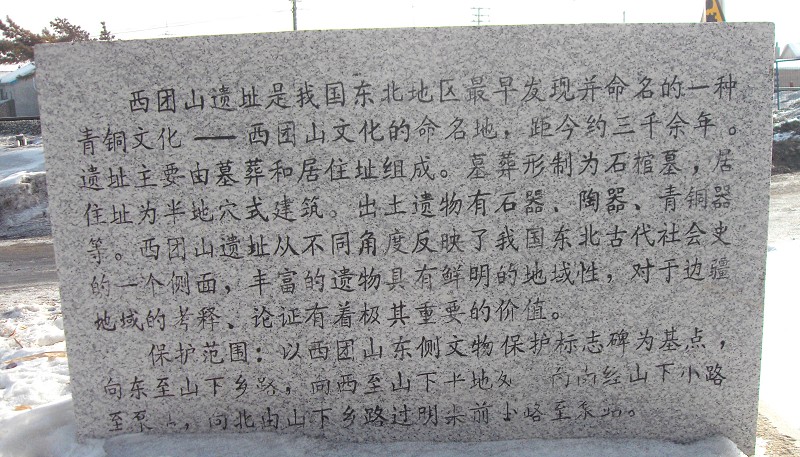 西团山遗址是我国东北地区最早发现并命名的一种
青铜文化——西团山文化的命名地，距今约三千余年。
遗址主要由墓葬和居住址组成。墓葬形制为石棺墓，居
住址为半地穴式建筑。出土遗物有石器、陶器、青铜器
等。西团山遗址从不同角度反映了我国东北古代社会史
的一个侧面，丰富的遗物具有鲜明的地域性，对于边疆
地域的考释、论证有着极其重要的价值。
保护范围：以西团山东侧文物保护标志碑为基点，
向东至山下乡路，向西至山下 地 向南经山下小路
至泵 ，向北由山下乡路过 前小路至泵站。